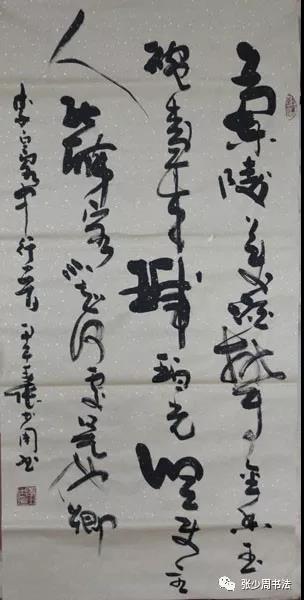 蘭陵美酒鬱金香玉
碗盛来琥珀光但使主
人能醉客不知何處是他鄉
李白客中行一首 少周书
张少周书法